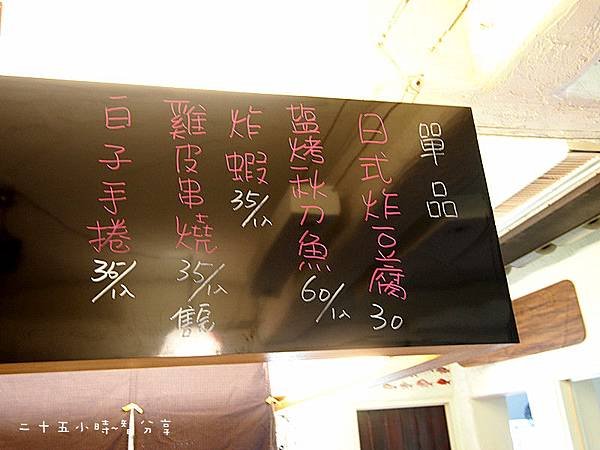 單品
日式炸豆腐
30
鹽烤秋刀魚
60/以
炸蝦
35/以
雞皮串燒
35/以
售完
白子手捲
35/以
二十五小時~智分享